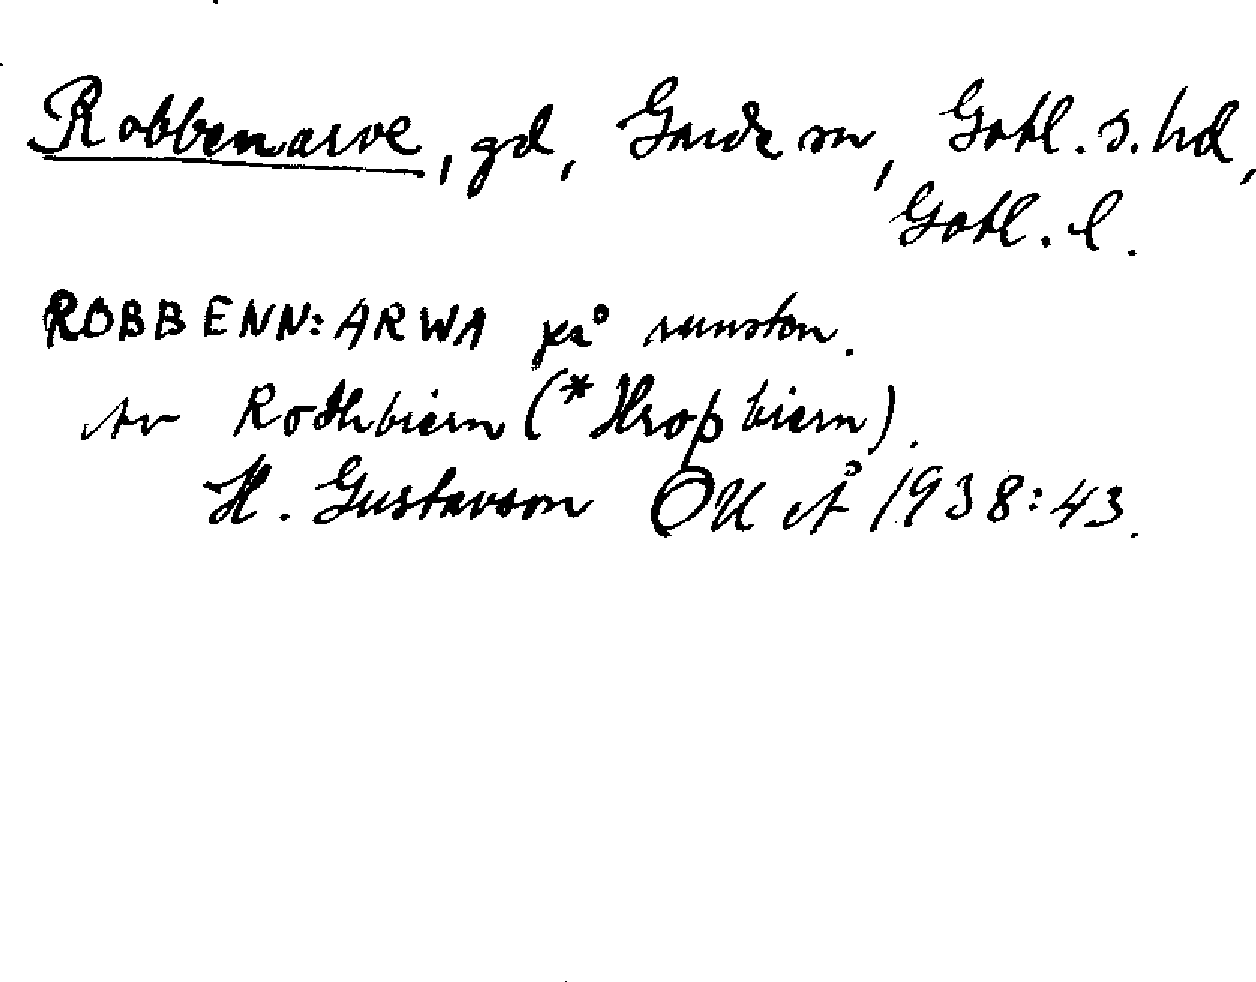 Robbenarve, gd, Garde sn, Gotl. s. hd,
Gotl. l.
ROBBENN:ARWA på runsten.
Av Rothbiern (*Hroþbiern).
H. Gustavson OUÅ 1938:43.